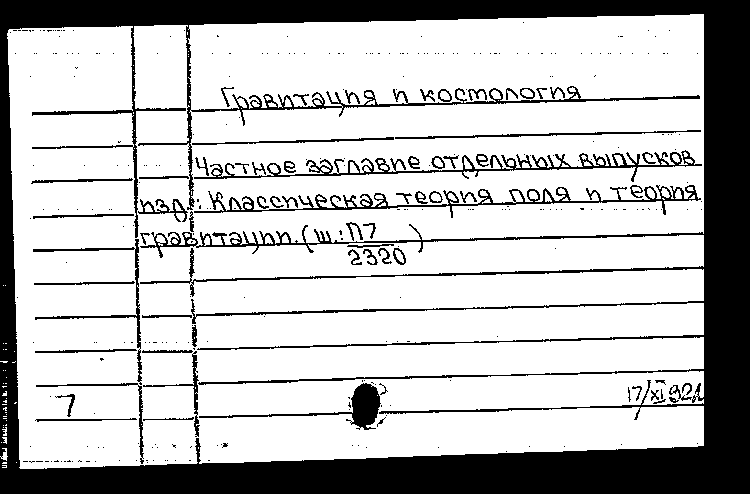 Гравитация и костология
Частное заглавие отдельных выпусков
изд.: Классическая теория поля и теория
гравитации. (ш.: П7/2320)
7
17/XI 92